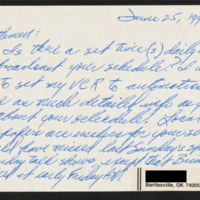 June 25, 199
Is there a set time(s) daily
broadcast your schedule? I
to set my VCR to automatica
as much detailed info as
about your schedule. Local
are useless for your
have missed last Sunday's
talk shows, except that Brian
it early Friday AM.
Bartlesville, OK 7400